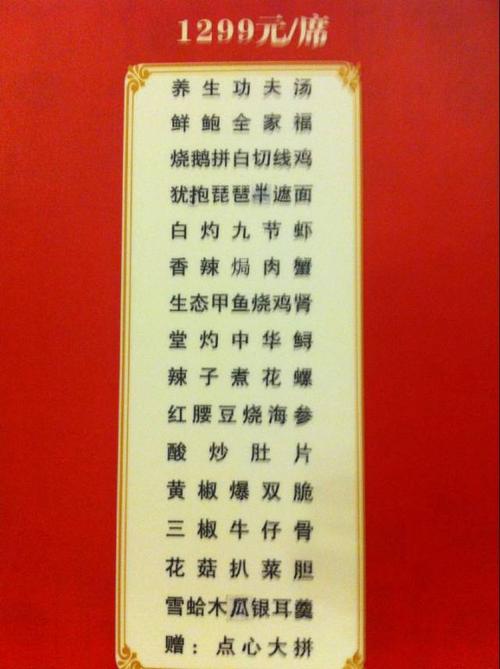 1299元/席
养生功夫汤
鲜鲍全家福
烧鹅拼白切线鸡
犹抱琵琶半遮面
白灼九节虾
香辣焗肉蟹
生态甲鱼烧鸡肾
堂灼中华鲟
辣子煮花螺
红腰豆烧海参
酸炒肚片
黄椒爆双脆
三椒牛仔骨
花菇扒菜胆
雪蛤木瓜银耳羹
赠：点心大拼